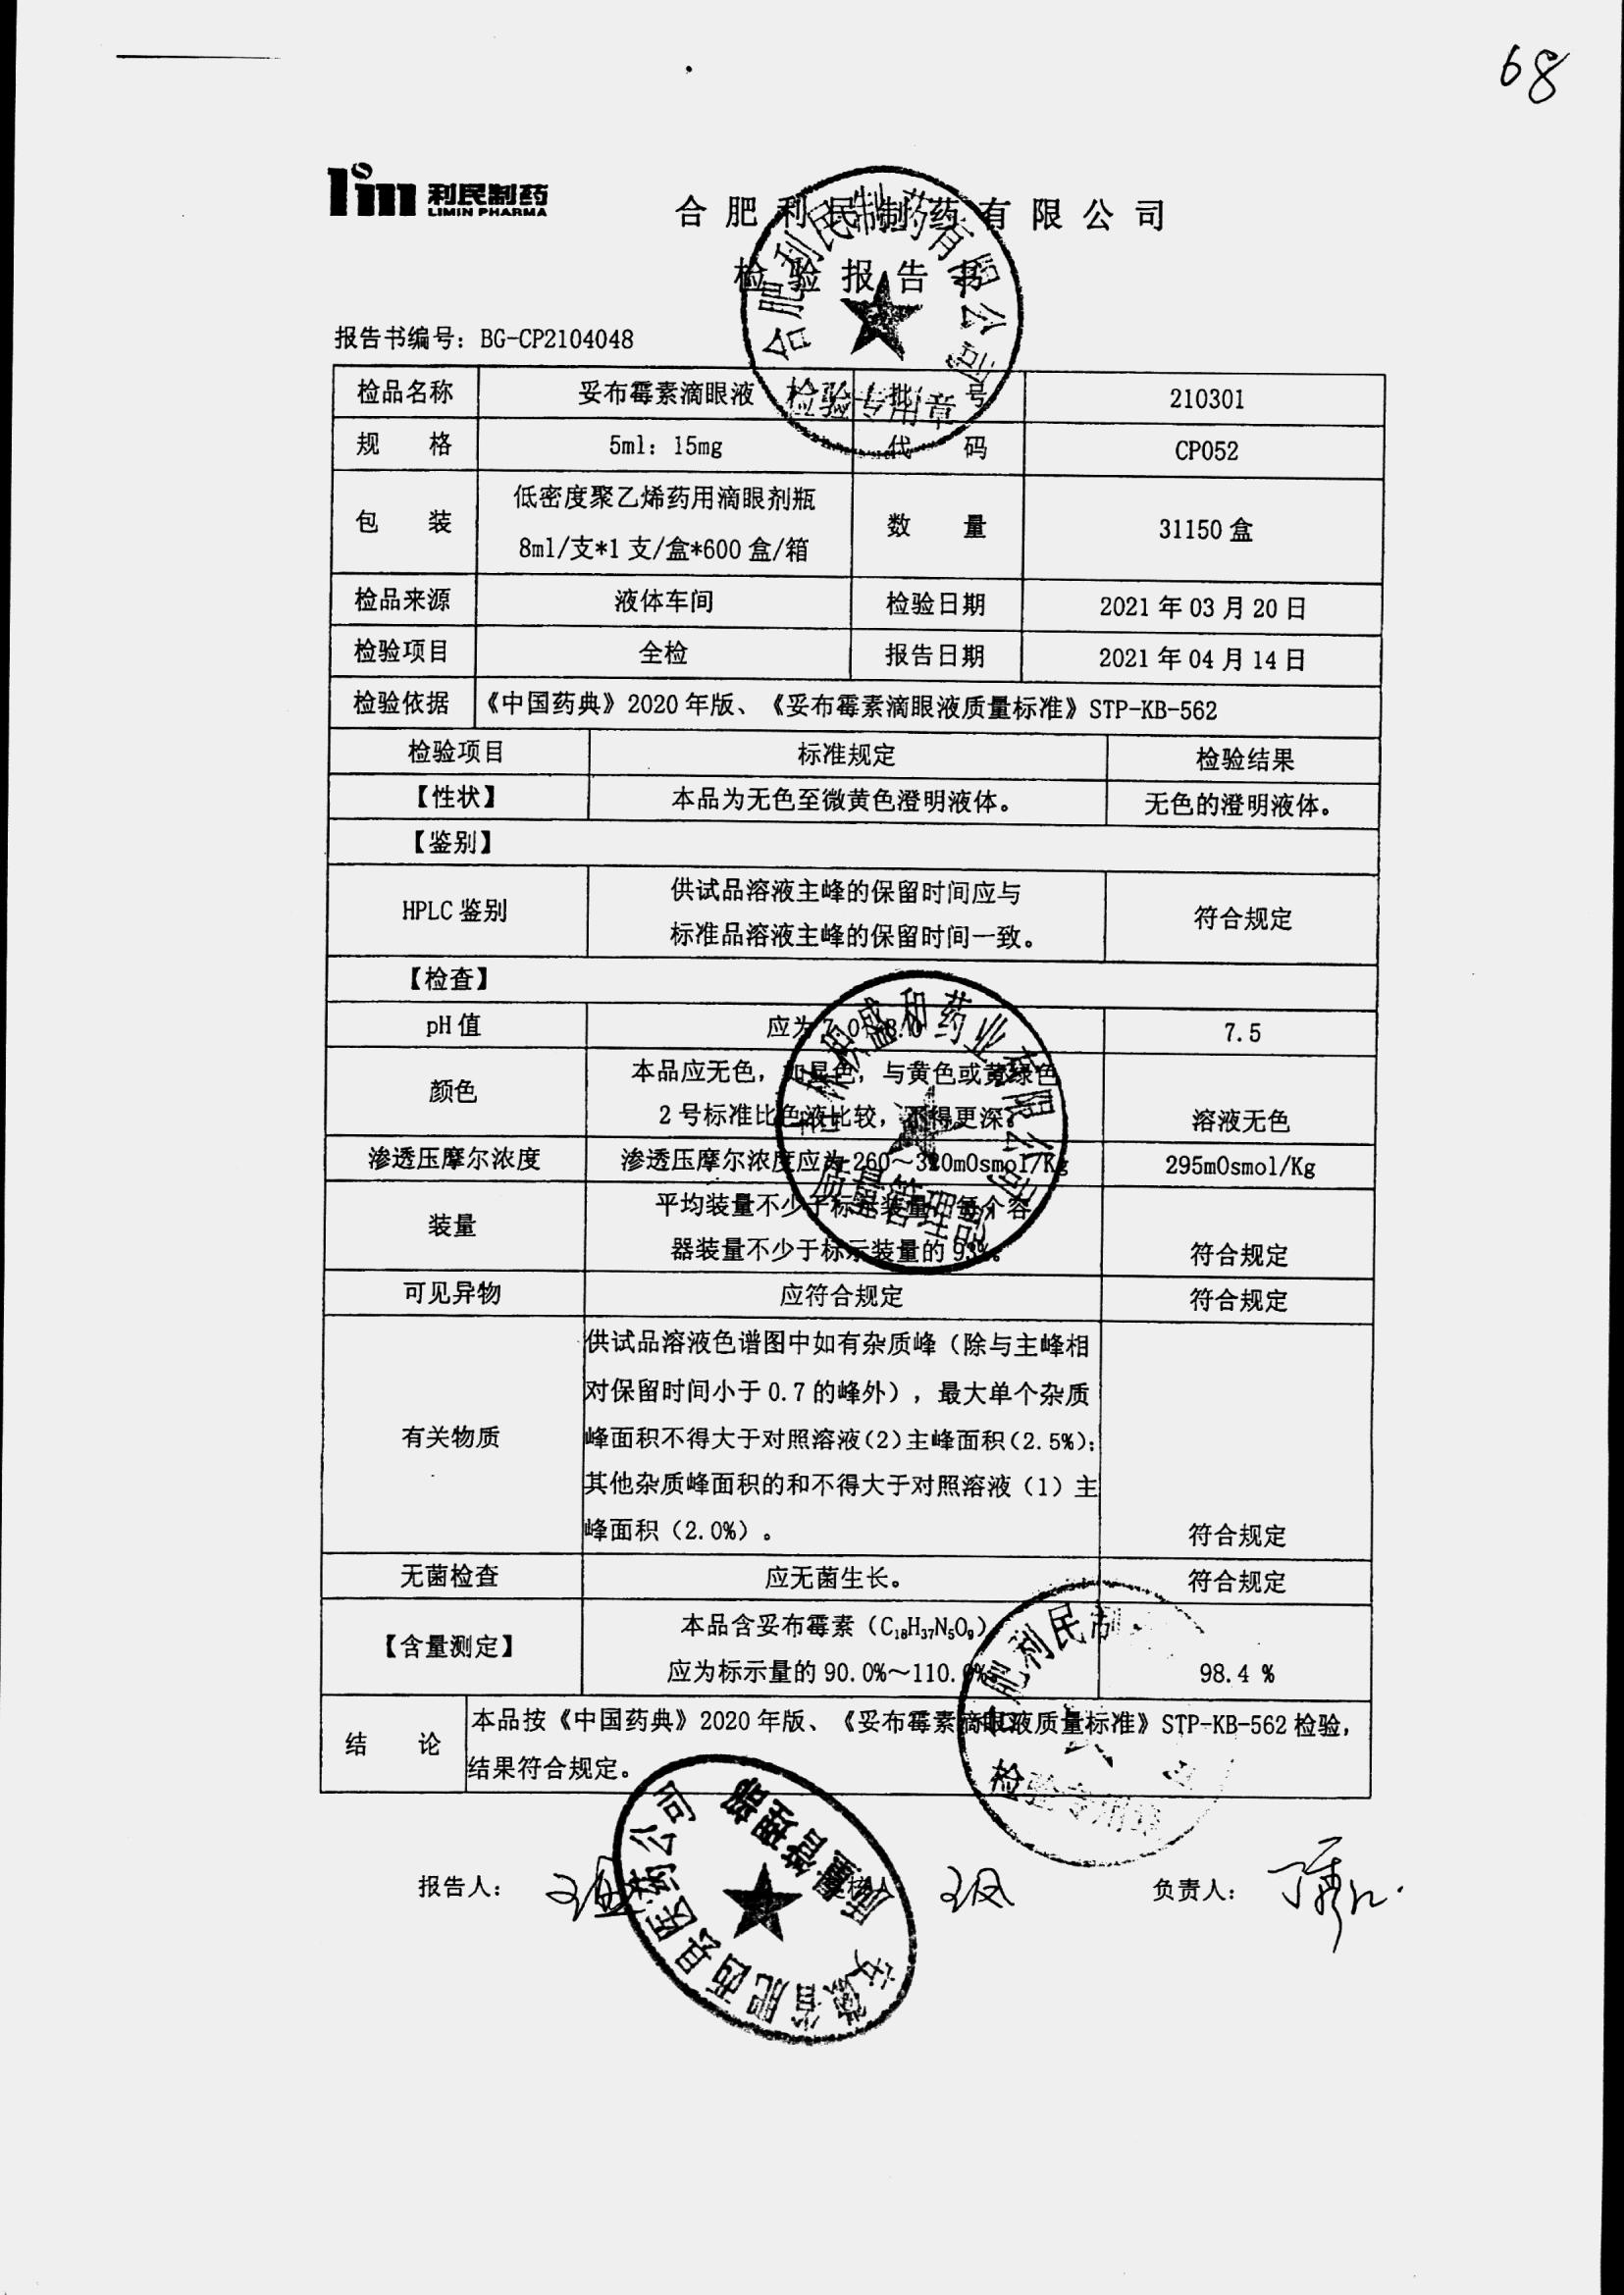 68
lim 利民制药
LIMIN PHARMA
合肥利民制药有限公司
检验报告书
合肥利民制药有限公司
检验专用章
报告书编号：BG-CP2104048
检品名称 妥布霉素滴眼液 批 号 210301
规 格 5ml：15mg 代 码 CP052
包 装 低密度聚乙烯药用滴眼剂瓶
8ml/支*1 支/盒*600 盒/箱 数 量 31150 盒
检品来源 液体车间 检验日期 2021 年 03 月 20 日
检验项目 全检 报告日期 2021 年 04 月 14 日
检验依据 《中国药典》2020 年版、《妥布霉素滴眼液质量标准》STP-KB-562
检验项目 标准规定 检验结果
【性状】 本品为无色至微黄色澄明液体。 无色的澄明液体。
【鉴别】
HPLC 鉴别 供试品溶液主峰的保留时间应与
标准品溶液主峰的保留时间一致。 符合规定
【检查】
pH 值 应为 7.0～8.0 7.5
颜色 本品应无色，如显色，与黄色或黄绿色
2 号标准比色液比较，不得更深。 溶液无色
渗透压摩尔浓度 渗透压摩尔浓度应为 260～320mOsmol/Kg 295mOsmol/Kg
装量 平均装量不少于标示装量，每个容
器装量不少于标示装量的 93%。 符合规定
盛和药业有限公司
质量管理部
可见异物 应符合规定 符合规定
有关物质 供试品溶液色谱图中如有杂质峰（除与主峰相
对保留时间小于 0.7 的峰外），最大单个杂质
峰面积不得大于对照溶液(2)主峰面积(2.5%)；
其他杂质峰面积的和不得大于对照溶液（1）主
峰面积（2.0%）。 符合规定
无菌检查 应无菌生长。 符合规定
【含量测定】 本品含妥布霉素（C₁₈H₃₇N₅O₉）
应为标示量的 90.0%～110.0% 98.4 %
结 论 本品按《中国药典》2020 年版、《妥布霉素滴眼液质量标准》STP-KB-562 检验，
结果符合规定。
合肥利民制
检验专用章
报告人： 复核人 负责人：
安徽省肥西县医药公司
质量管理部